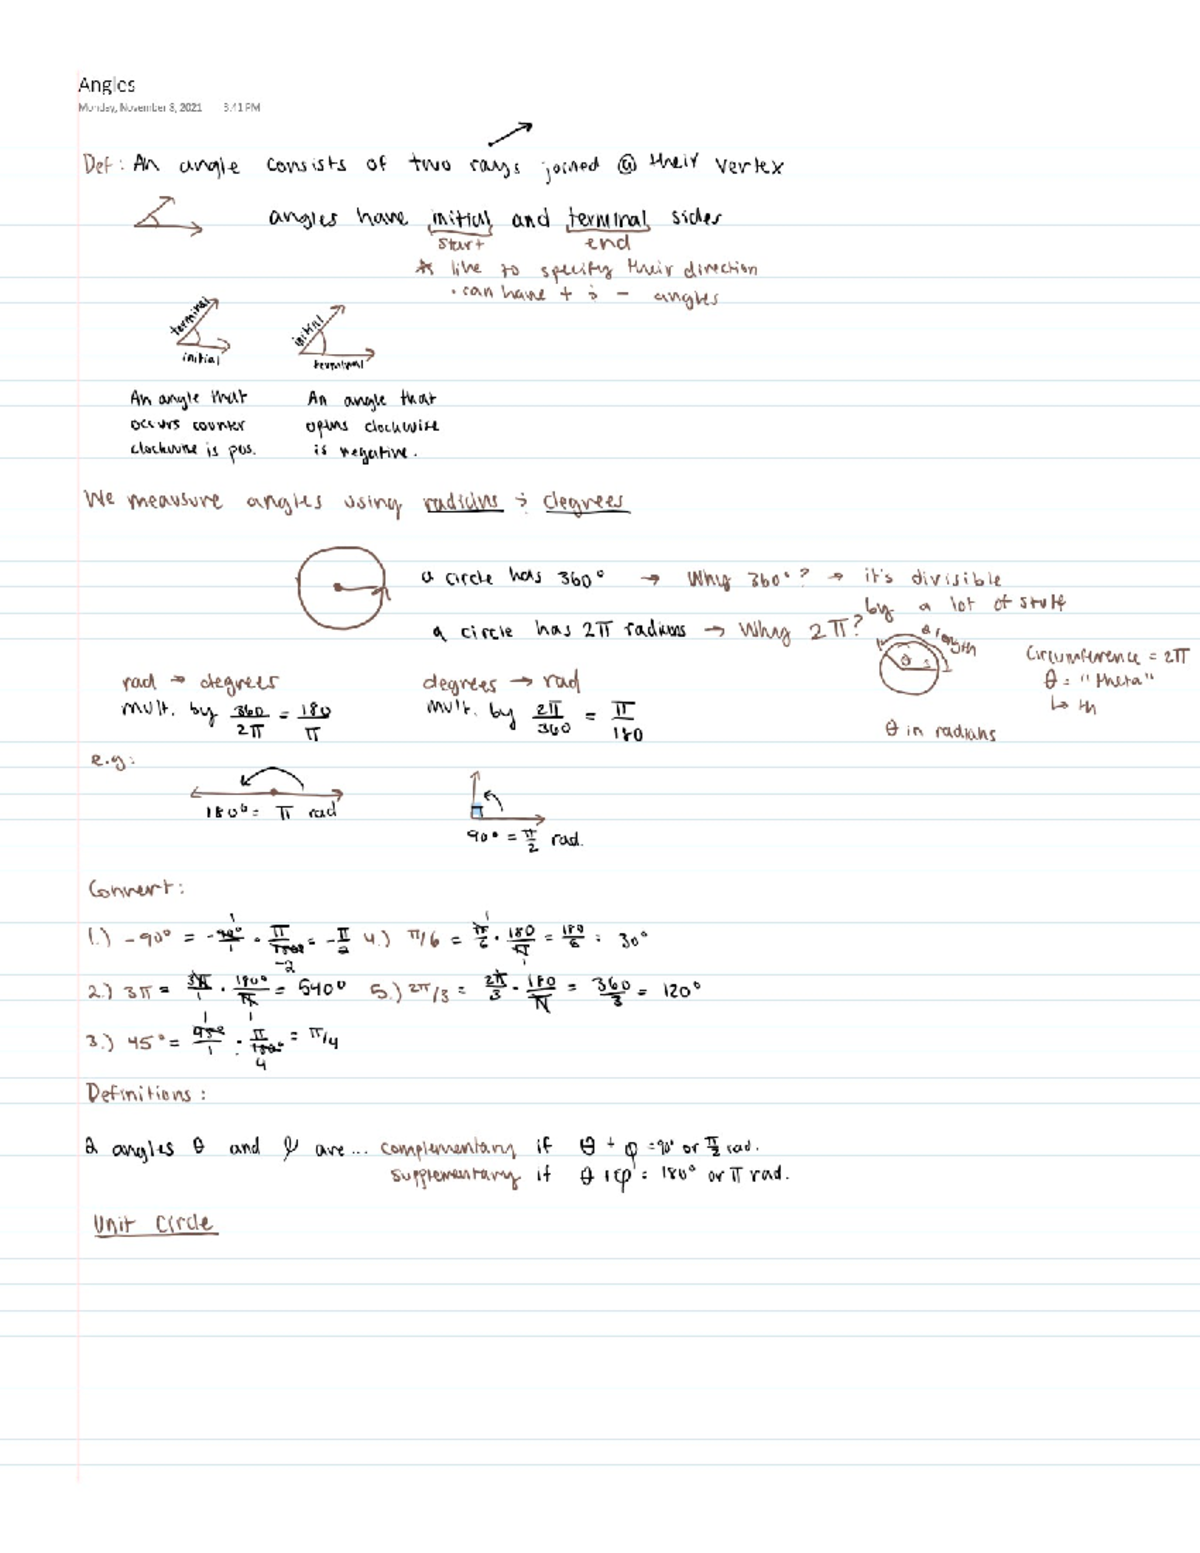 Angles
Monday, November 8, 2021 3:41 PM
Def: An angle consists of two rays joined @ their vertex
angles have initial and terminal sides
start end
* like to specify their direction
· can have + & - angles
terminal initial
initial terminal
An angle that An angle that
occurs counter opens clockwise
clockwise is pos. is negative.
We meausure angles using radians & degrees
a circle has 360° → Why 360°? → it's divisible
by a lot of stuff
a circle has 2π radians → Why 2π?
θ length
θ
Circumference = 2π
θ = "theta"
↳ th
θ in radians
rad → degrees degrees → rad
mult. by 360/2π = 180/π mult. by 2π/360 = π/180
e.g:
180° = π rad
90° = π/2 rad.
Convert:
1.) -90° = -90°/1 · π/180° = -π/2 4.) π/6 = π/6 · 180/π = 180/6 = 30°
2.) 3π = 3π/1 · 180°/π = 540° 5.) 2π/3 = 2π/3 · 180/π = 360/3 = 120°
3.) 45° = 45°/1 · π/180° = π/4
Definitions:
2 angles θ and φ are... complementary if θ + φ = 90° or π/2 rad.
supplementary if θ + φ = 180° or π rad.
Unit Circle